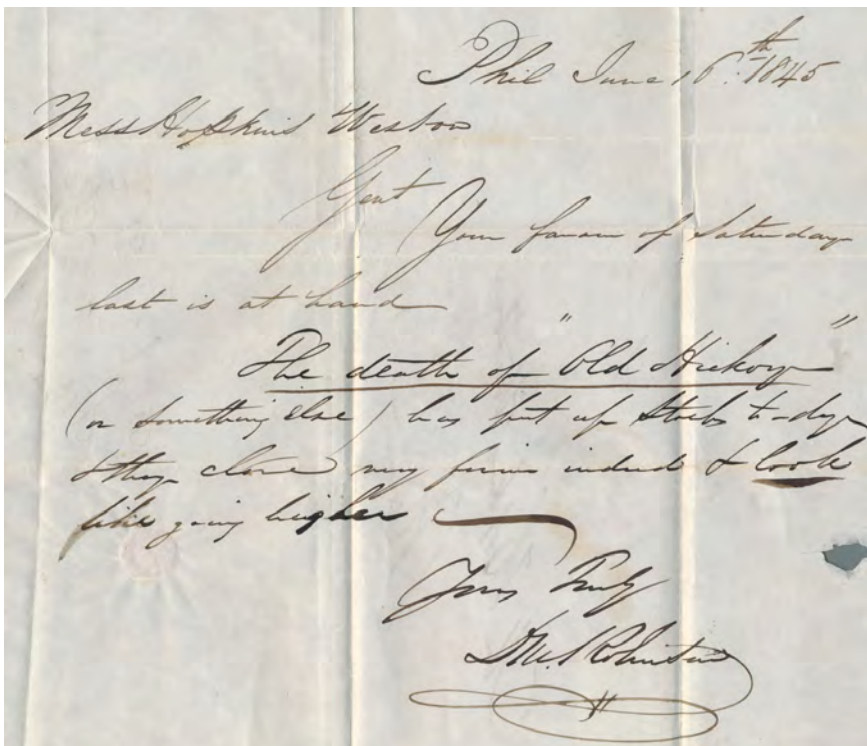 Phil June 16th 1845
Mess Hopkins Weston
Gent
Your favour of Saturday
last is at hand
The death of "Old Hickory"
(or something else) has put up Stocks to-day
& they close very firm indeed & look
like going higher
Yours Truly
Robinson